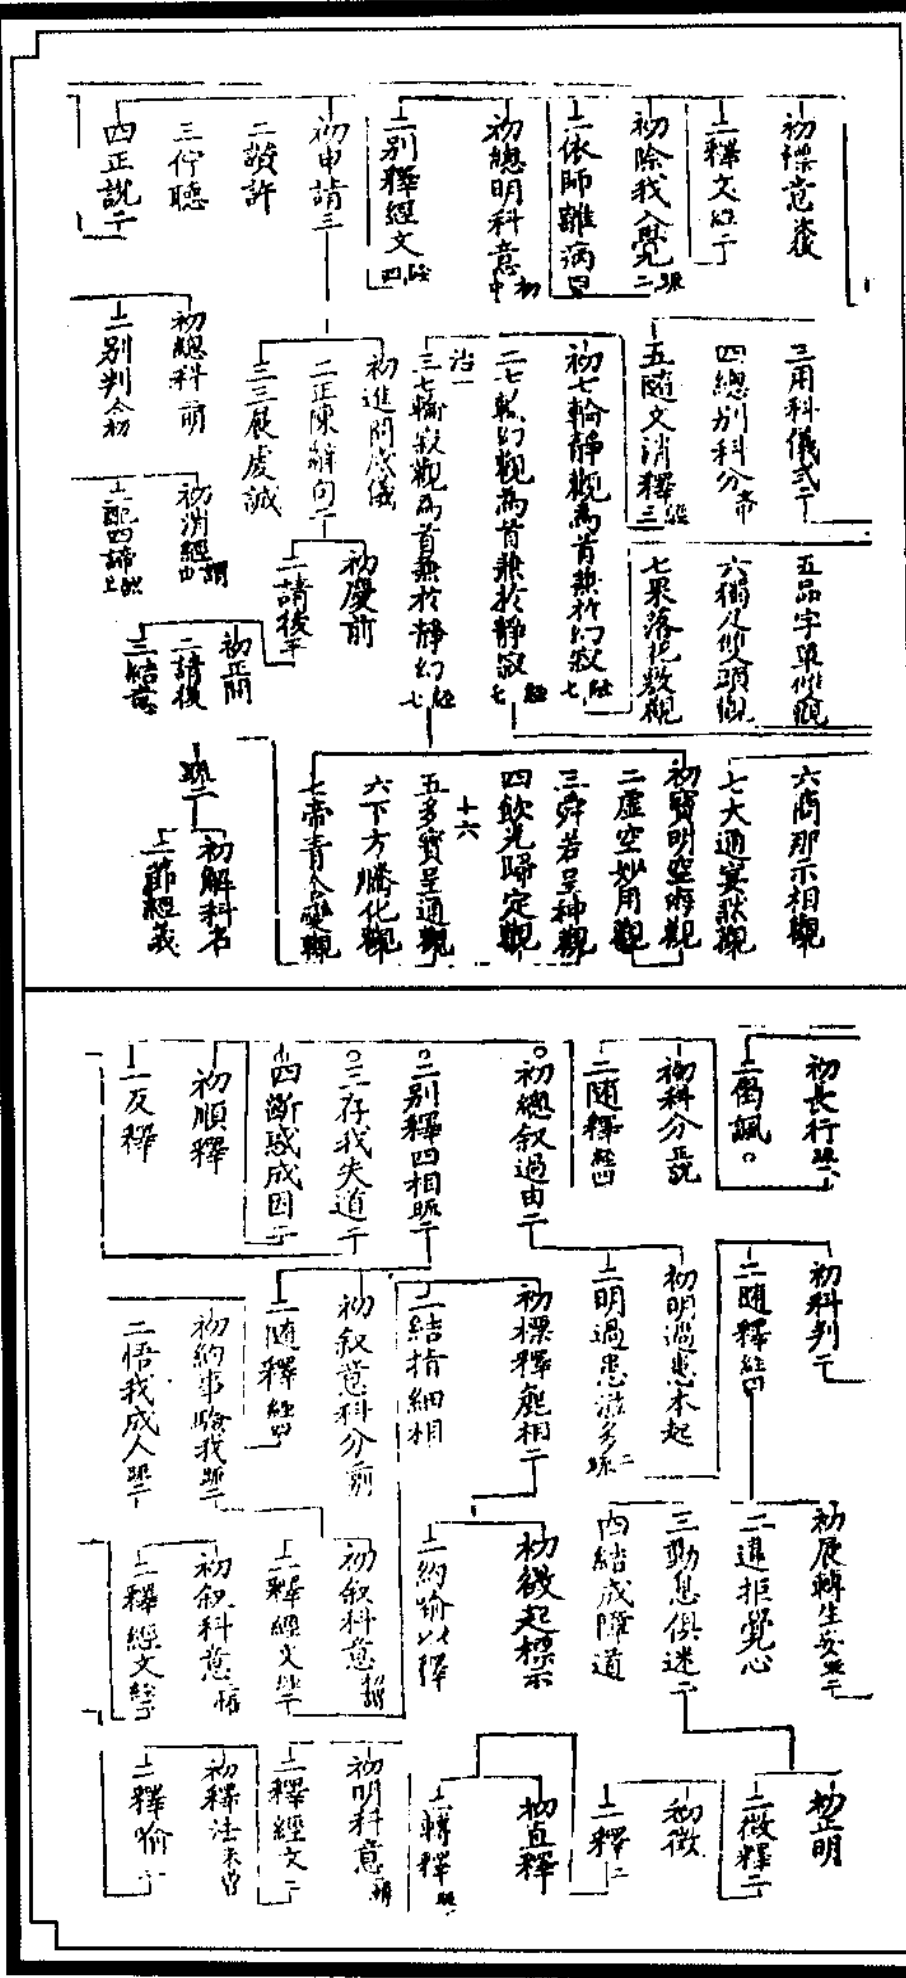 初標意
二釋文經二
初除我入覺二
二依師離病
初總明科意
二別釋經文
初申請三
二讚許
三佇聽
四正說二
三用科儀式二
四總別科分
五隨文消釋三
初七輪靜觀為首兼於幻寂七
二七輪幻觀為首兼於靜寂七
三七輪寂觀為首兼於靜幻七
初進問威儀
二正陳辭句二
三三展虔誠
初總科
二別判
五品字單雙觀
六獨足雙頭觀
七果落花敷觀
初慶前
二請後
初消經
二配四諦
初正問
二請後
三結意
六商那示相觀
七大通宴默觀
初寶明空海觀
二虛空妙用觀
三舜若呈神觀
四飲光歸定觀
五多寶呈通觀
十六
六下方騰化觀
七帝青含變觀
疏二
初解科名
二節經義
初長行
二偈諷
初科分
二隨釋經四
初總叙過由二
二別釋四相疏二
三存我失道二
四斷惑成因二
初順釋
二反釋
初科判二
二隨釋經四
初明過患本起
二明過患滋多疏二
初標釋麁相二
二結指細相
初叙意科分
二隨釋經四
初約事驗我
二悟我成人
初展轉生妄
二違拒覺心
三動息俱迷二
四結成障道
初徵起標示
二約喻以釋
初叙科意
二釋經文
初叙科意
二釋經文
初正明
二徵釋二
初徵
二釋二
初直釋
二轉釋
初明科意
二釋經文二
初釋法
二釋喻二